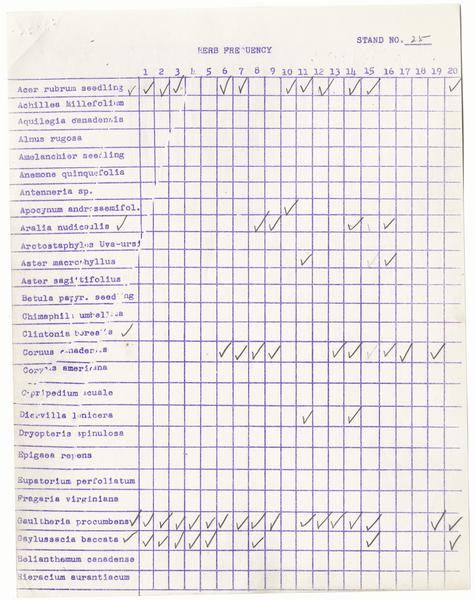 STAND NO. 25
HERB FREQUENCY
1 2 3 4 5 6 7 8 9 10 11 12 13 14 15 16 17 18 19 20
Acer rubrum seedling ✓ ✓ ✓ ✓ ✓ ✓ ✓ ✓ ✓ ✓ ✓ ✓
Achillea Millefolium
Aquilegia canadensis
Alnus rugosa
Amelanchier seedling
Anemone quinquefolia
Antenneria sp.
Apocynum androsaemifol. ✓
Aralia nudicaulis ✓ ✓ ✓ ✓ ✓
Arctostaphylos Uva-ursi
Aster macrophyllus ✓ ✓
Aster sagittifolius
Betula papyr. seedling
Chimaphila umbellata
Clintonia borealis ✓
Cornus canadensis ✓ ✓ ✓ ✓ ✓ ✓ ✓ ✓ ✓
Corylus americana
Cypripedium acaule
Diervilla lonicera ✓ ✓
Dryopteris spinulosa
Epigaea repens
Eupatorium perfoliatum
Fragaria virginiana
Gaultheria procumbens ✓ ✓ ✓ ✓ ✓ ✓ ✓ ✓ ✓ ✓ ✓ ✓ ✓ ✓ ✓ ✓ ✓
Gaylussacia baccata ✓ ✓ ✓ ✓ ✓ ✓ ✓ ✓ ✓
Helianthemum canadense
Hieracium aurantiacum